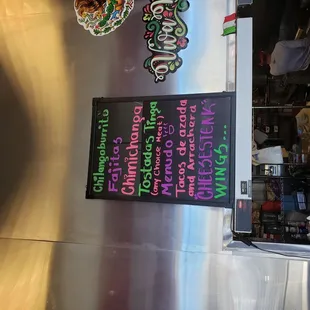 Viva
Chilangoburrito
Fajitas
Chimichanga
Tostadas Tinga
(any Choice Meat)
Menudo
Tacos de azada
and Arrachera
CHEESESTEAK
WINGS...